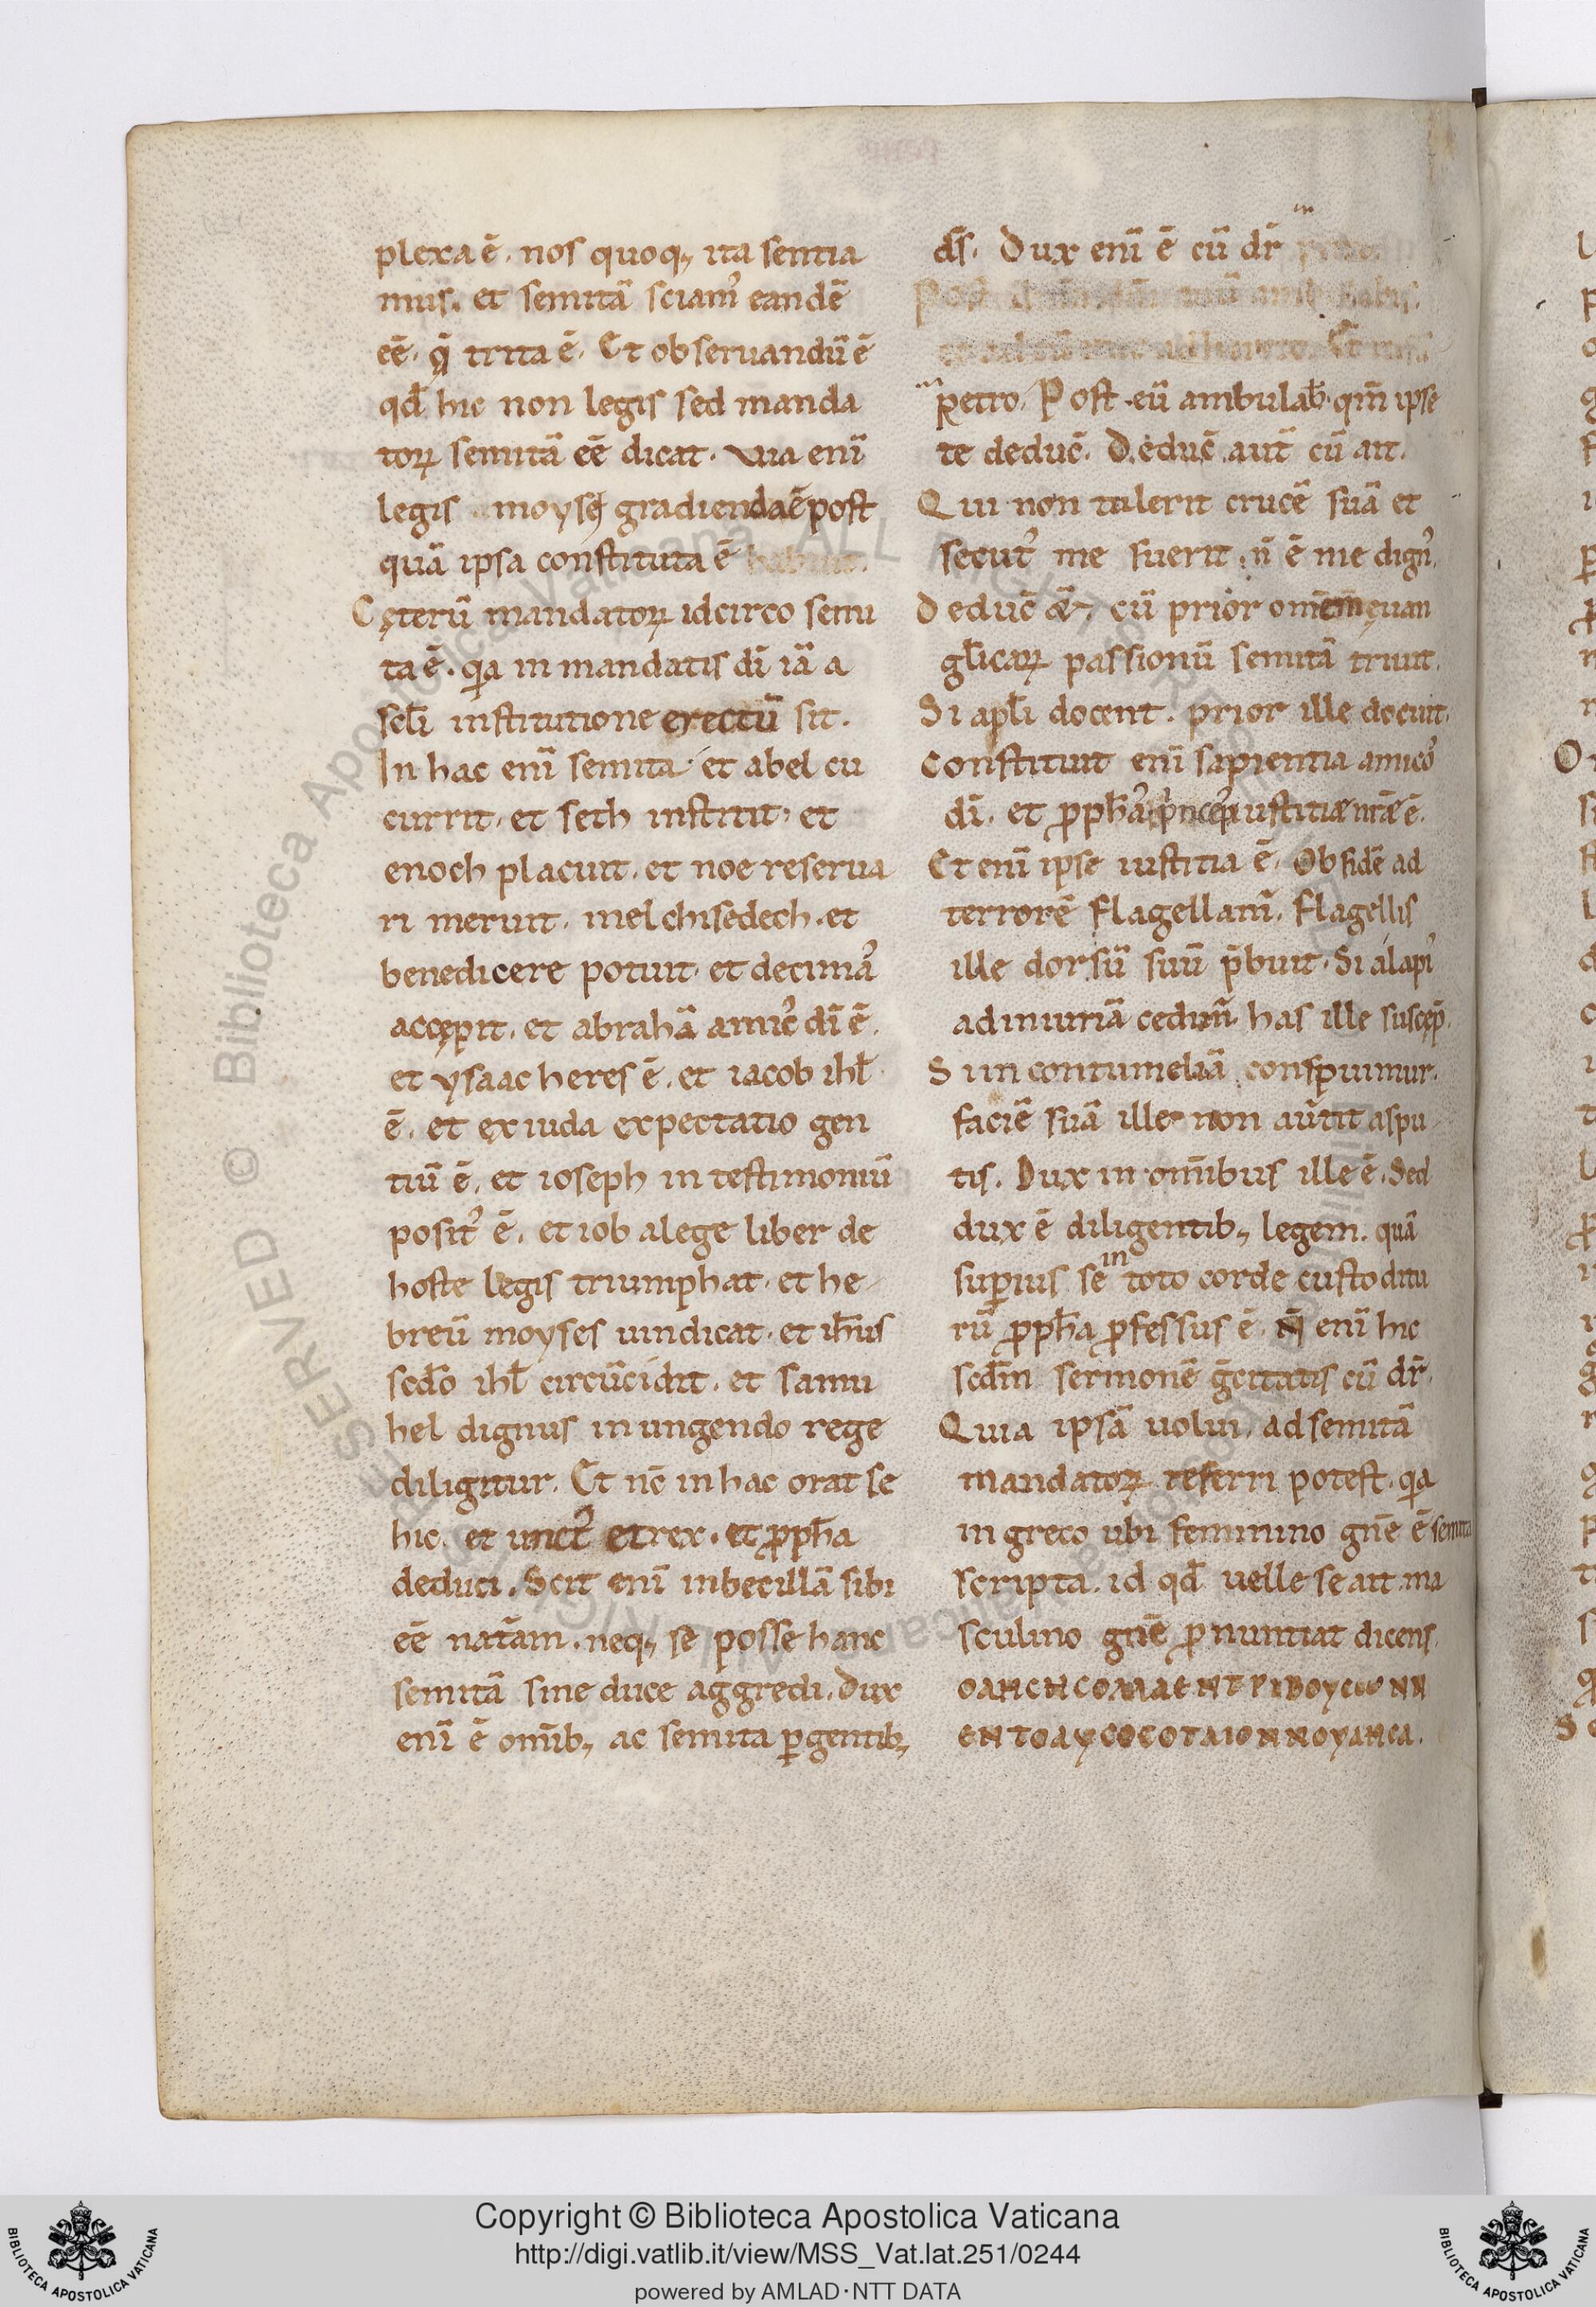 plexa ē. nos quoq; ita sentia
mus. et semitā sciam᾽ eandē
eē. q̄ trita ē. Et obseruandū ē
qd̄ hic non legis sed manda
toꝝ semitā eē dicat. Via enī
legis moysę gradienda ē post
quā ipsa constituta ē
Cęterū mandatoꝝ idcirco semi
ta ē. qa in mandatis dī iā a
scl̄i institutione erectū sit.
In hac enī semita et abel cu
currit. et seth institit. et
enoch placuit. et noe reserua
ri meruit. melchisedech. et
benedicere potuit. et decima᾽
accępit. et abrahā amic᾽ dī ē.
et ysaac heres ē. et iacob ihl̄
ē. et ex iuda expectatio gen
tiū ē. et ioseph in testimoniū
posit᾽ ē. et iob a lege liber de
hoste legis triumphat. et he
breū moyses uindicat. et ih̄us
scd̄o ihl̄ circūcidit. et samu
hel dignus in ungendo rege
diligitur. Et nc̄ in hac orat se
hic. et unct᾽ et rex. et ꝓph̄a
deduci. Scit enī inbecillā sibi
eē natām. neq; se posse hanc
semitā sine duce aggredi. Dux
enī ē omīb; ac semita ꝑgentib;
ds̄. Dux enī ē cū dr̄ in
Petro. Post eū ambulab̄. qm̄ ipse
te deduc̄. Deduc̄ aut̄ cū ait.
Qui non tulerit crucē suā et
secut᾽ me fuerit. n̄ ē me dign᾽.
Deduc̄ &̄, cū prior omēm ęuan
gl̄icaꝝ passionū semitā triuit.
Si apl̄i docent. prior ille docuit.
Constituit enī sapientia amico᾽
dī. et ꝓph̄a᾽ p̓ncep̄ iustitiæ nr̄æ ē.
Et enī ipse iustitia ē. Ob fidē ad
terrorē flagellam̄. flagellis
ille dorsū suū p̄buit. Si alapi᾽
ad iniuriā cedim̄ has ille suscęp̄.
Si in contumeliā conspuimur.
faciē suā ille non aūtit aspu
tis. Dux in omībus ille ē. Sed
dux ē diligentib; legem. quā
suꝑius se in toto corde custoditu
rū ꝓph̄a ꝓfessus ē. n̄ enī hic
scd̄m sermonē ḡcitatis cū dr̄.
Quia ipsā uolui. ad semitā
mandatoꝝ referri potest. qa
in greco ubi feminino gn̄e ē semita
scripta. id qd̄ uelle se ait. ma
sculino gn̄e ꝓnuntiat dicens.